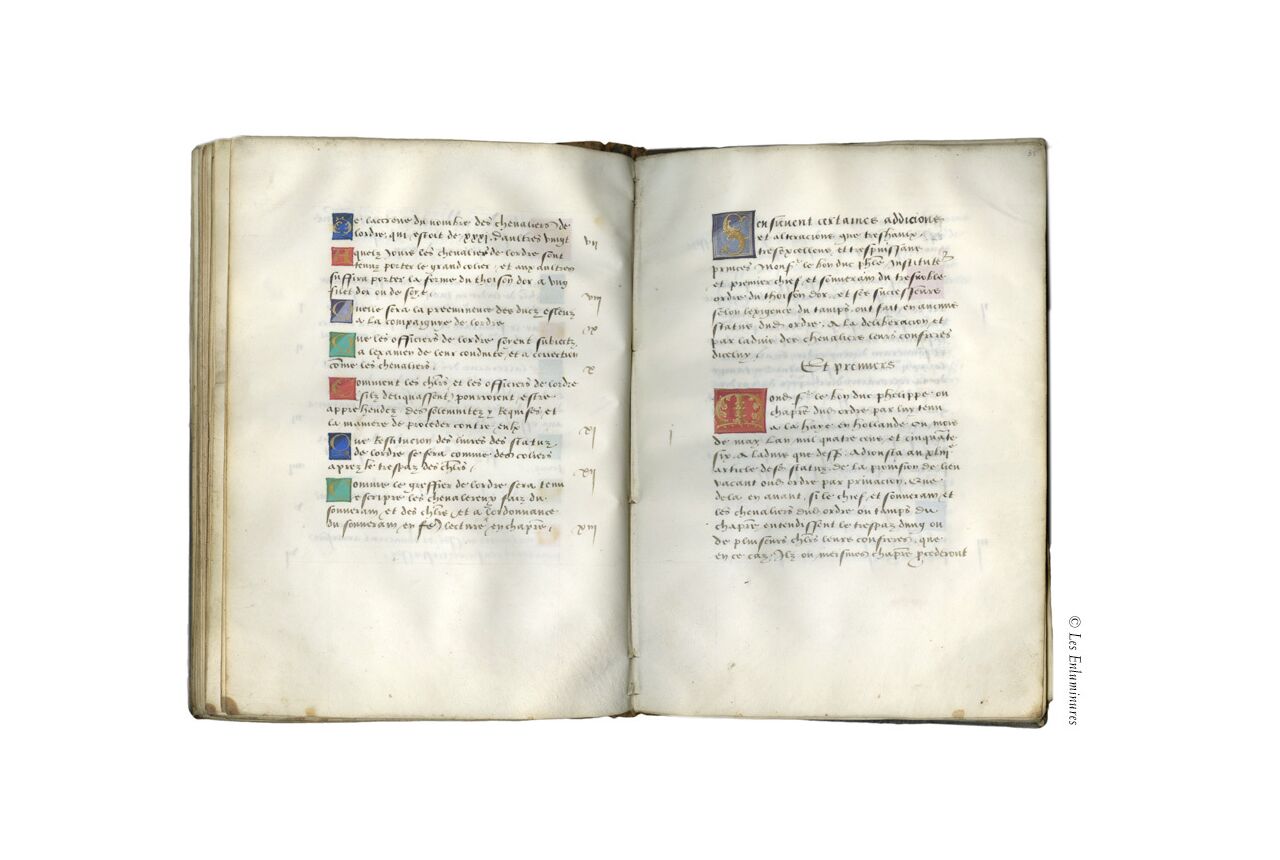 De lacreue du nombre des chevaliers de
lordre, qui estoit de xxxi. daultres vingt
vii
A quelz jours les chevaliers de lordre sont
tenuz porter le grand colier, et aux aultres
suffira porter la forme du thoison dor a ung
filet dor ou de soye.
viii
Quelle sera la preeminence des ducz esleuz
a la compaignye de lordre
ix
Que les officiers de lordre soyent subiectz
a lexamen de leur conduite, et a correction
cõme les chevaliers.
x
Comment les chlrs et les officiers de lordre
silz deliquassent, pourroient estre
apprehendez, des solennitez y requises, et
la maniere de proceder contre eulx
xi
Que restitucion des livres des statuz
de lordre se fera comme des coliers
aprez le trespaz des chlrs.
xii
Comme le greffier de lordre sera tenu
escripre les chevalereux faiz du
souverain et des chlrs, et a lordonnance
du souverain, en fe lecture en chapre.
xiii
35
Sensuivent certaines addicions
et alteracions que treshaulx,
tresexcellens, et trespuissans
princes, Monsr le bon duc phle Instituteur
et premier chief, et souverain du tresnoble
ordre du thoison dor, et ses successeurs
selon lexigence du tamps, ont fait, en aucuns
statuz dud. ordre, a la deliberacion et
par laduis des chevaliers leurs confreres
dicelluy.
Et premiers
i
Mons.r le bon duc philippe, ou
chapre dud. ordre par luy tenu
a la haye en hollande, ou mois
de may, Lan mil quatre cens et cinquante
six. a laduis que desss. adiousta au xliiie
article desd. statuz, de la provision de lieu
vacant oud. ordre par privacion. Que
dela en avant, si le chief et souverain, et
les chevaliers dud. ordre ou tamps du
chapre entendissent le trespaz dung ou
de pluiseurs chlrs leurs confreres, que
en ce caz, Ilz ou meismes chapre pcederont
© Les Enluminures